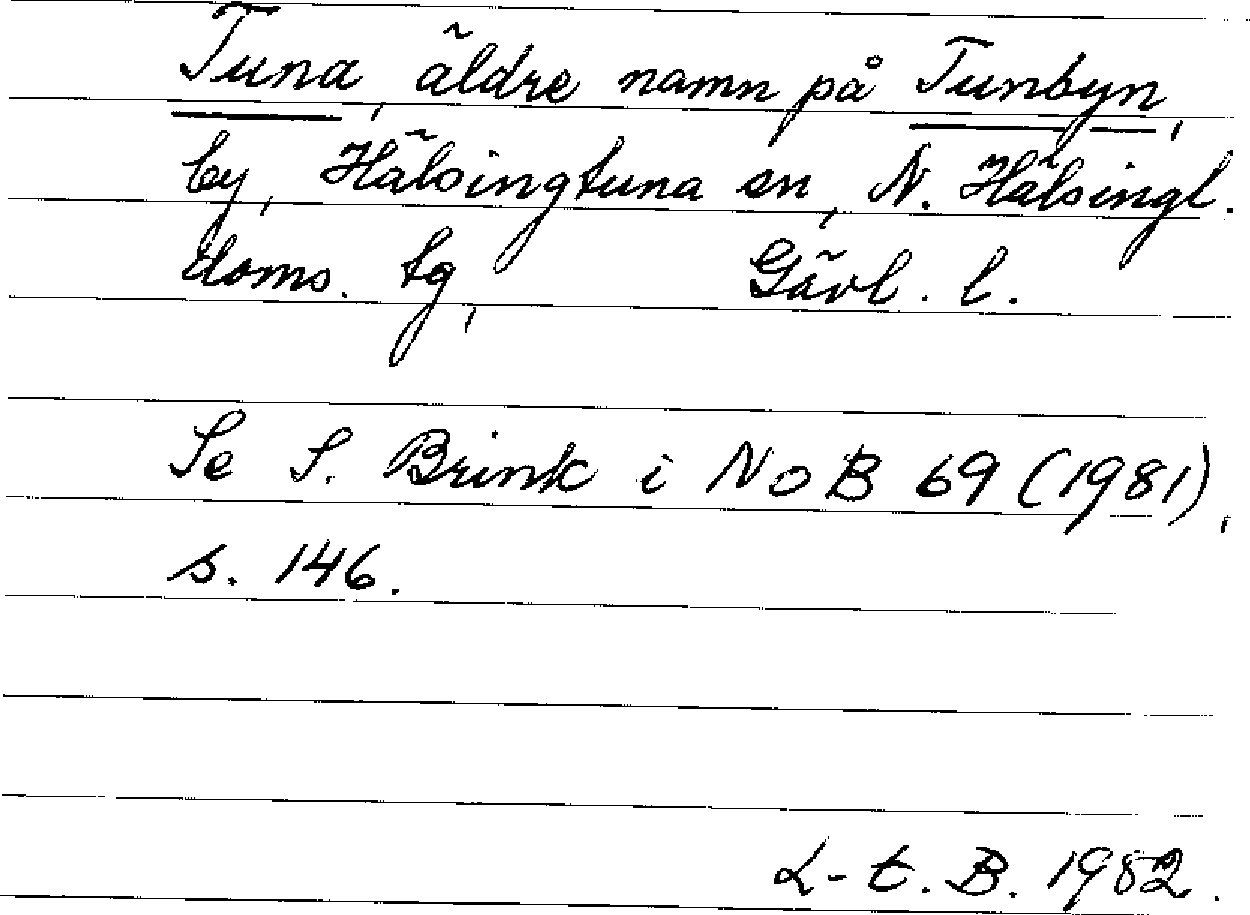 Tuna, äldre namn på Tunbyn,
by, Hälsingtuna sn, N. Hälsingl.
doms. tg, Gävl. l.
Se S. Brink i NoB 69 (1981),
s. 146.
L-t. B. 1982.